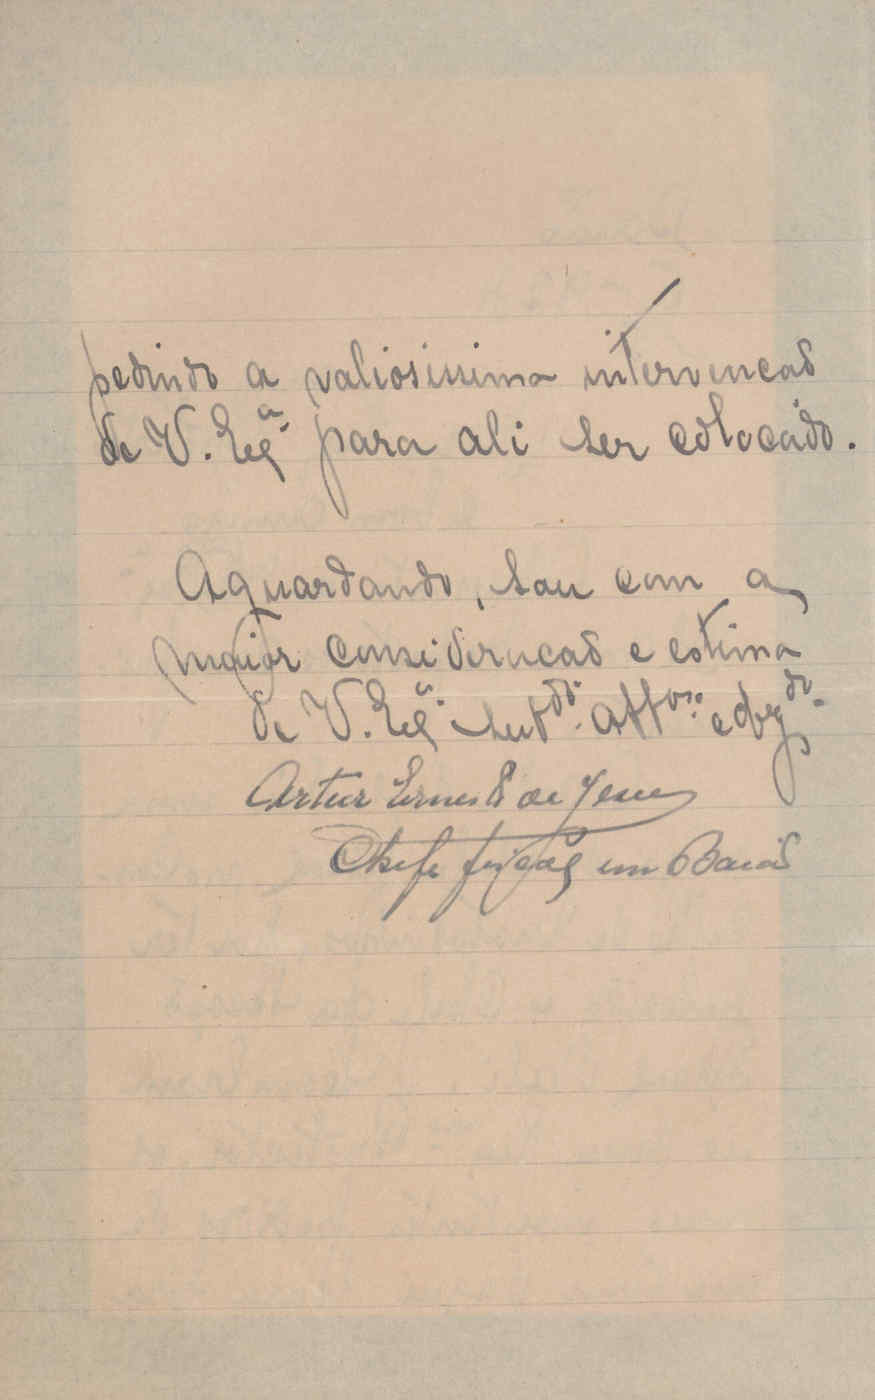 pedindo a valiosissima intervencão
de V. Exª para ali ser colocado.
Aguardando, sou com a
maior consideracão e estima
de V. Exª. attº. e obgdo.
Artur Ernesto de Jesus
Chefe fiscal em Baião